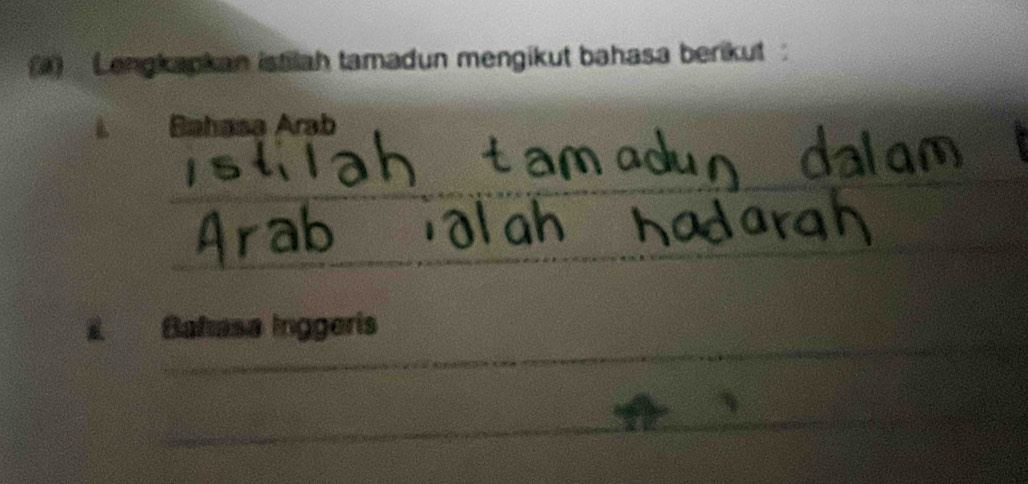 (a) Lengkapkan istilah tamadun mengikut bahasa berikut :
i. Bahasa Arab
istilah tamadun dalam
Arab ialah hadarah
ii. Bahasa Inggeris